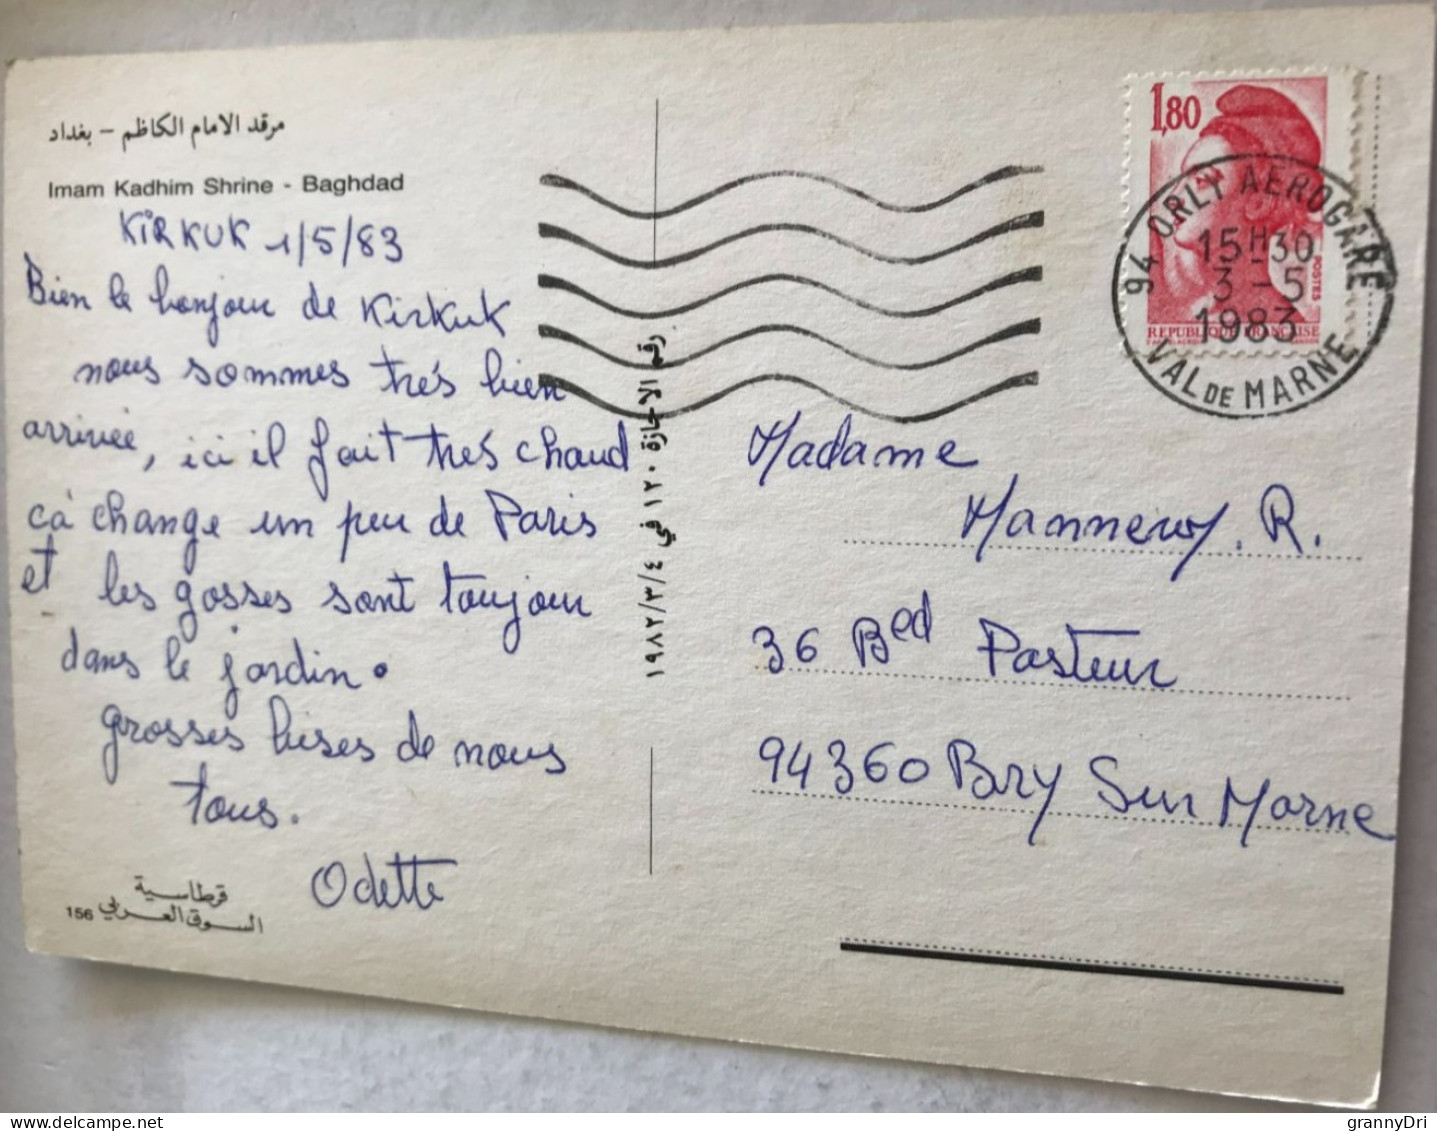 مرقد الامام الكاظم - بغداد
Imam Kadhim Shrine - Baghdad
KIRKUK 1/5/83
Bien le bonjour de Kirkuk
nous sommes trés bien
arrivée, ici il fait trés chaud
cà change un peu de Paris
et les gosses sont toujour
dans le jardin.
grosses bises de nous
tous.
Odette
قرطاسية
السوق العربي
156
رقم الاجازة ١٢٠ في ١٩٨٢/٣/٤
1,80
POSTES
REPUBLIQUE FRANÇAISE
94 ORLY AEROGARE
15H30
3-5
1983
VAL DE MARNE
Madame
R.
36 Bed Pasteur
94360 Bry Sur Marne
grannyDri